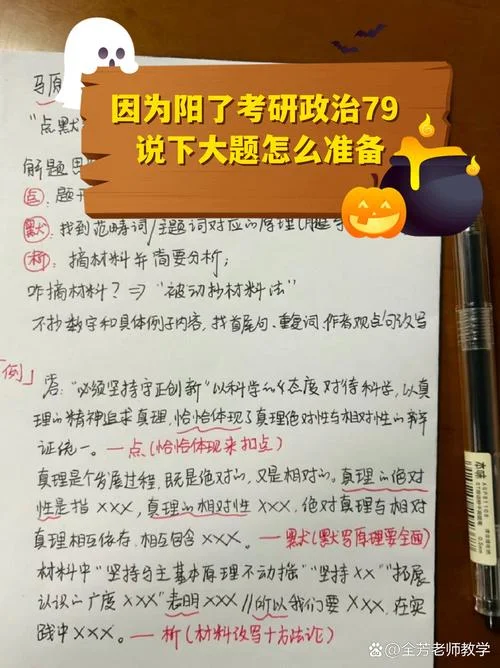 因为阳了考研政治79
说下大题怎么准备
马原
"点默
解题思
点:题
默:找到范畴词/主题词对应的原理(
析:摘材料并简要分析;
咋摘材料?⇒"被动抄材料法"
不抄数字和具体例子内容,找首尾句、重复词、作者观点句改写
「例」
答:"必须坚持守正创新"以科学的态度对待科学,以真
理的精神追求真理,恰恰体现了真理绝对性与相对性的辩
证统一。—点(恰恰体现来扣点)
真理是个发展过程,既是绝对的,又是相对的。真理的绝对
性是指×××,真理的相对性×××,绝对真理与相对
真理相互依存、相互包含×××。—默(默写原理要全面)
材料中"坚持马主基本原理不动摇""坚持××""拓展
认识的广度×××"表明×××//所以我们要×××,在实
践中×××。—析(材料改写+方法论)
全芳老师教学